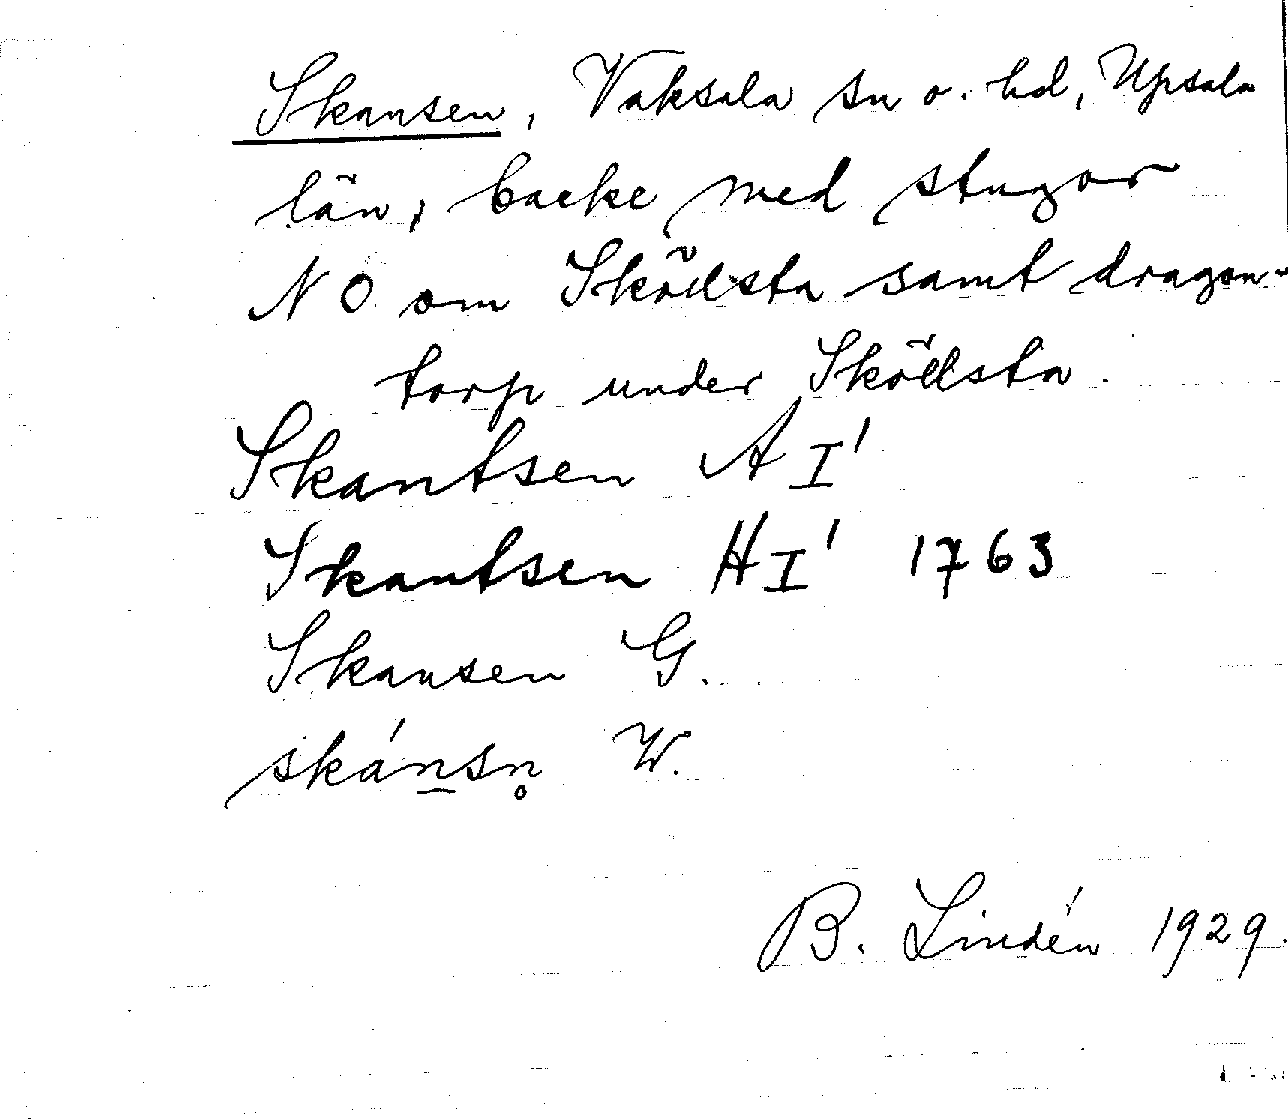 Skansen, Vaksala sn o. hd, Upsala
län, backe med stugor
NO om Skölsta samt dragon-
torp under Skölsta.
Skantsen A I'
Skantsen H I' 1763
Skansen G.
skánsn̥ W.
B. Lindén 1929.